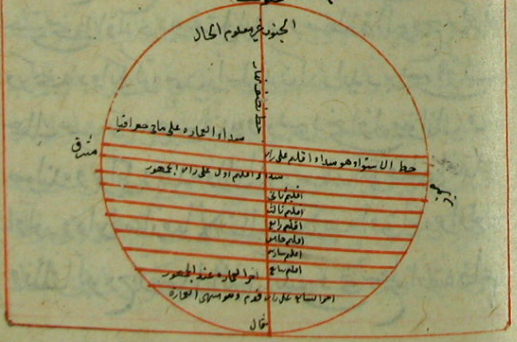 الجنوب غير معلوم الحال
خط نصف نهار
مبداء العمارة على ما فى جغرافيا
مشرق
خط الاستواء وهو مبداء اقليم على راى
مبداء اقليم اول على راى الجمهور
اقليم ثانى
اقليم ثالث
اقليم رابع
اقليم خامس
اقليم سادس
اقليم سابع
اخر العمارة عند الجمهور
اخر السابع على راى قوم وهو منتهى العمارة
شمال